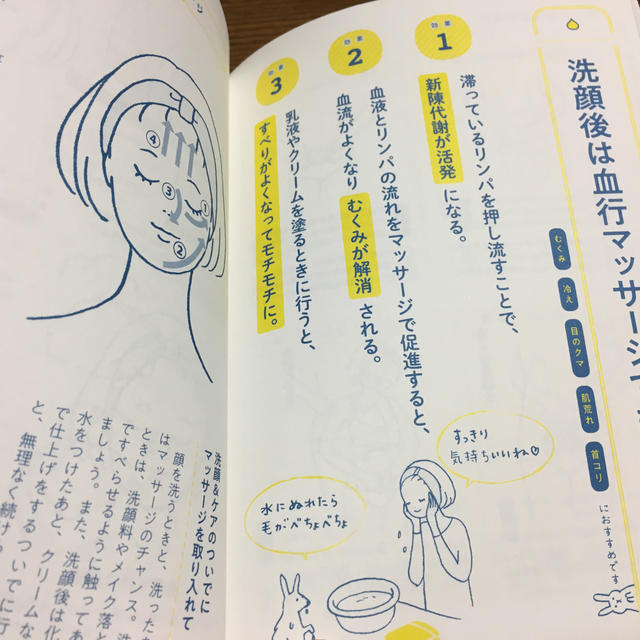 洗顔後は血行マッサージ
むくみ
冷え
目のクマ
肌荒れ
首コリ
におすすめです
効果
1
滞っているリンパを押し流すことで、
新陳代謝が活発になる。
効果
2
血液とリンパの流れをマッサージで促進すると、
血流がよくなりむくみが解消される。
効果
3
乳液やクリームを塗るときに行うと、
すべりがよくなってモチモチに。
すっきり
気持ちいいね♡
水にぬれたら
毛がべちょべちょ
洗顔&ケアのついでに
マッサージを取り入れて
顔を洗うときと、洗った
はマッサージのチャンス。洗
ときは、洗顔料やメイク落と
ですべらせるように触ってあ
ましょう。また、洗顔後は化
水をつけたあと、クリームな
で仕上げをするついでに行
と、無理なく続け